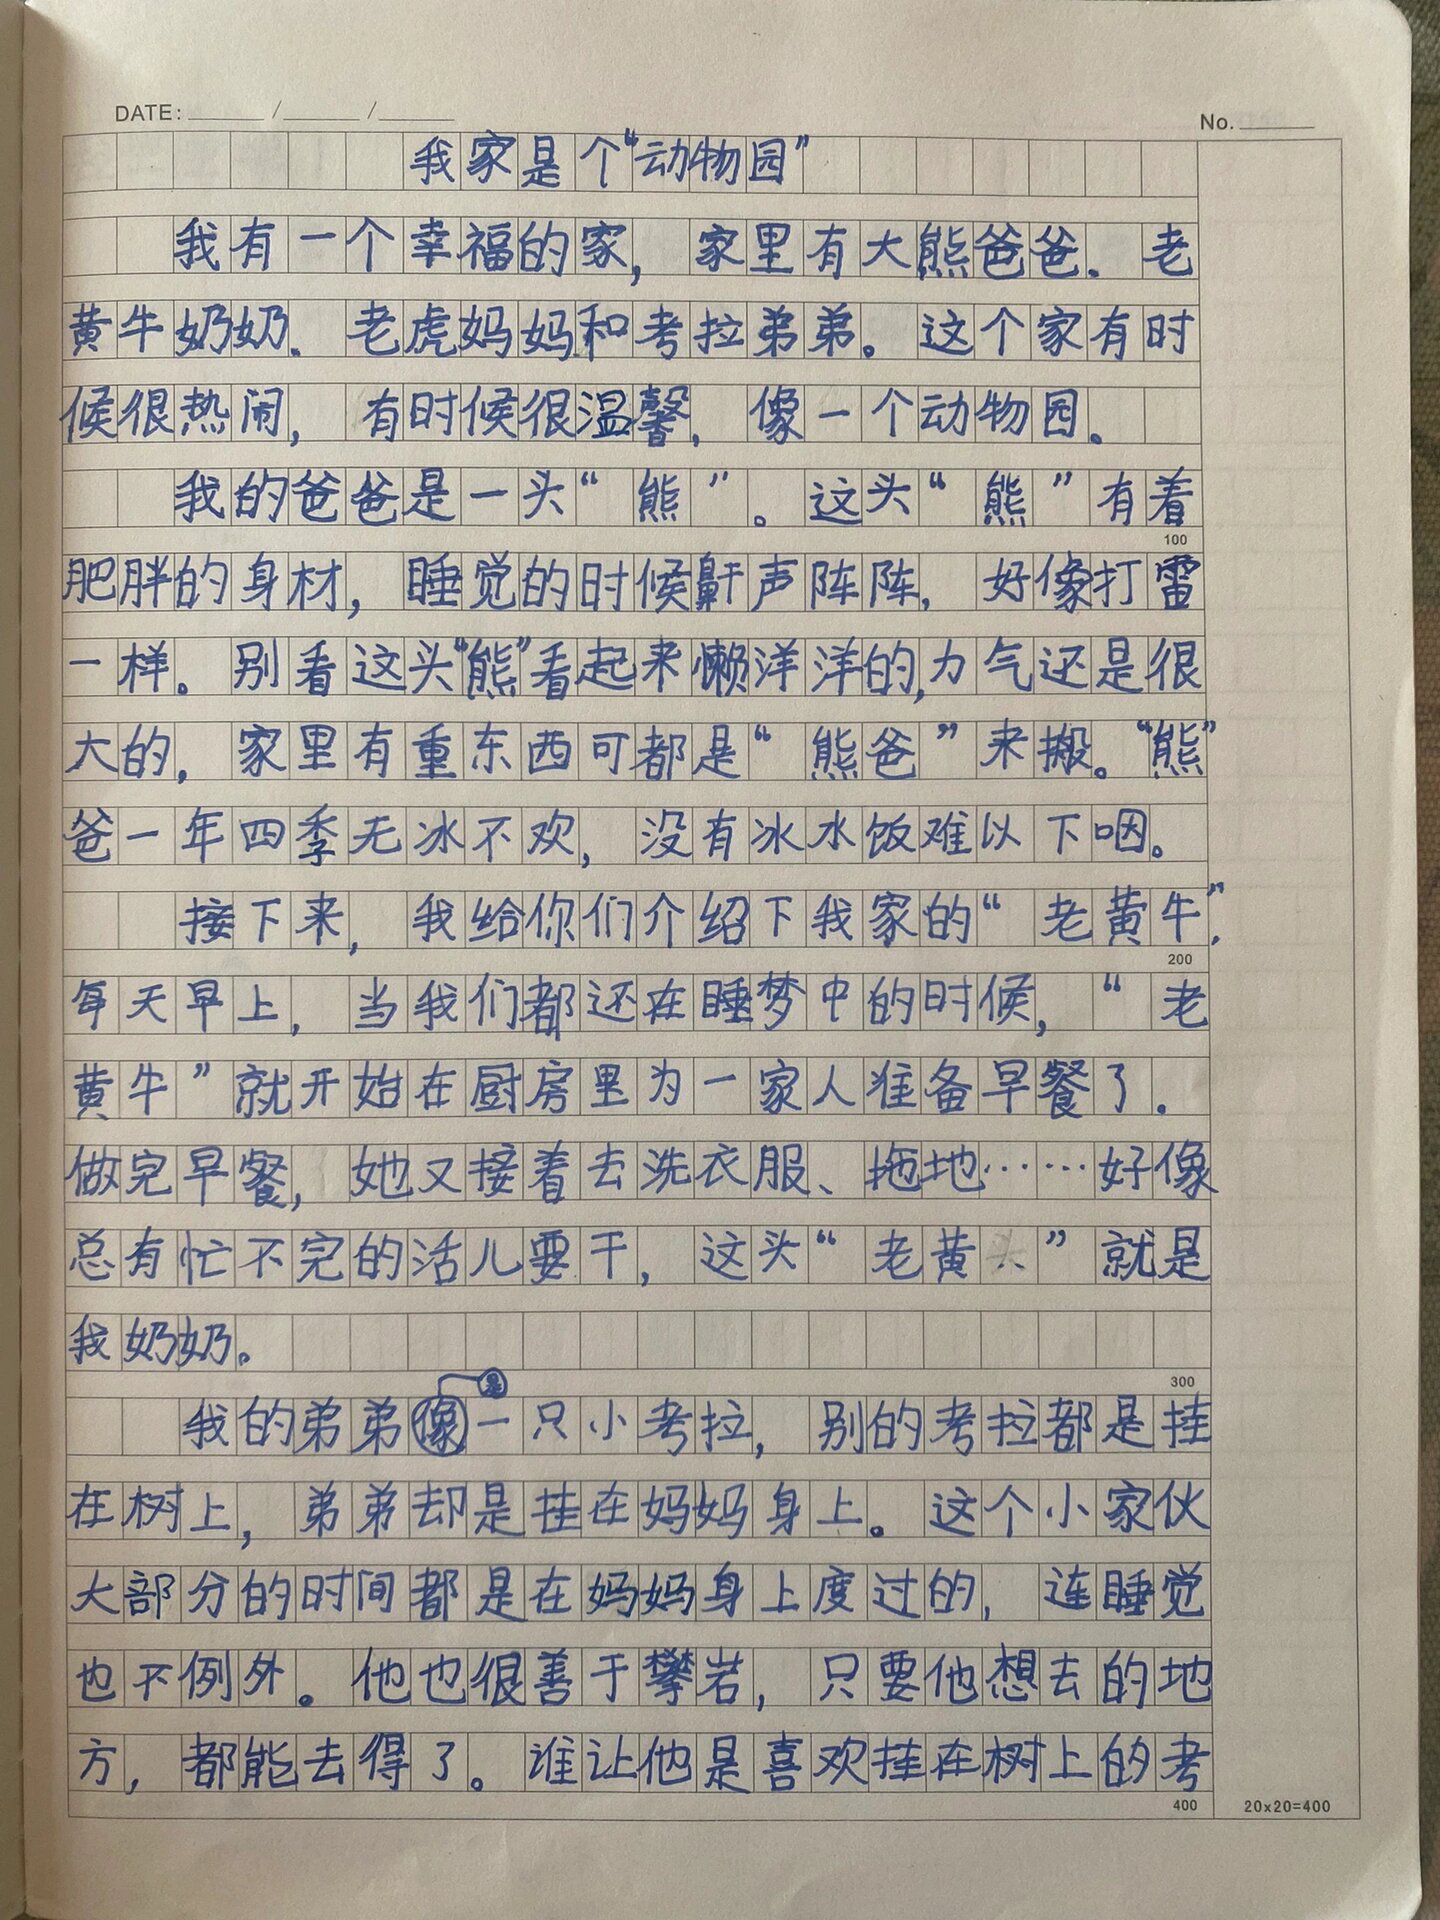 DATE: / /
No.
我家是个“动物园”
我有一个幸福的家，家里有大熊爸爸、老
黄牛奶奶、老虎妈妈和考拉弟弟。这个家有时
候很热闹，有时候很温馨，像一个动物园。
我的爸爸是一头“熊”。这头“熊”有着
100
肥胖的身材，睡觉的时候鼾声阵阵，好像打雷
一样。别看这头“熊”看起来懒洋洋的，力气还是很
大的，家里有重东西可都是“熊爸”来搬。“熊”
爸一年四季无冰不欢，没有冰水饭难以下咽。
接下来，我给你们介绍下我家的“老黄牛”，
200
每天早上，当我们都还在睡梦中的时候，“老
黄牛”就开始在厨房里为一家人准备早餐了。
做完早餐，她又接着去洗衣服、拖地……好像
总有忙不完的活儿要干，这头“老黄头”就是
我奶奶。
300
是
我的弟弟像一只小考拉，别的考拉都是挂
在树上，弟弟却是挂在妈妈身上。这个小家伙
大部分的时间都是在妈妈身上度过的，连睡觉
也不例外。他也很善于攀岩，只要他想去的地
方，都能去得了。谁让他是喜欢挂在树上的考
400
20x20=400